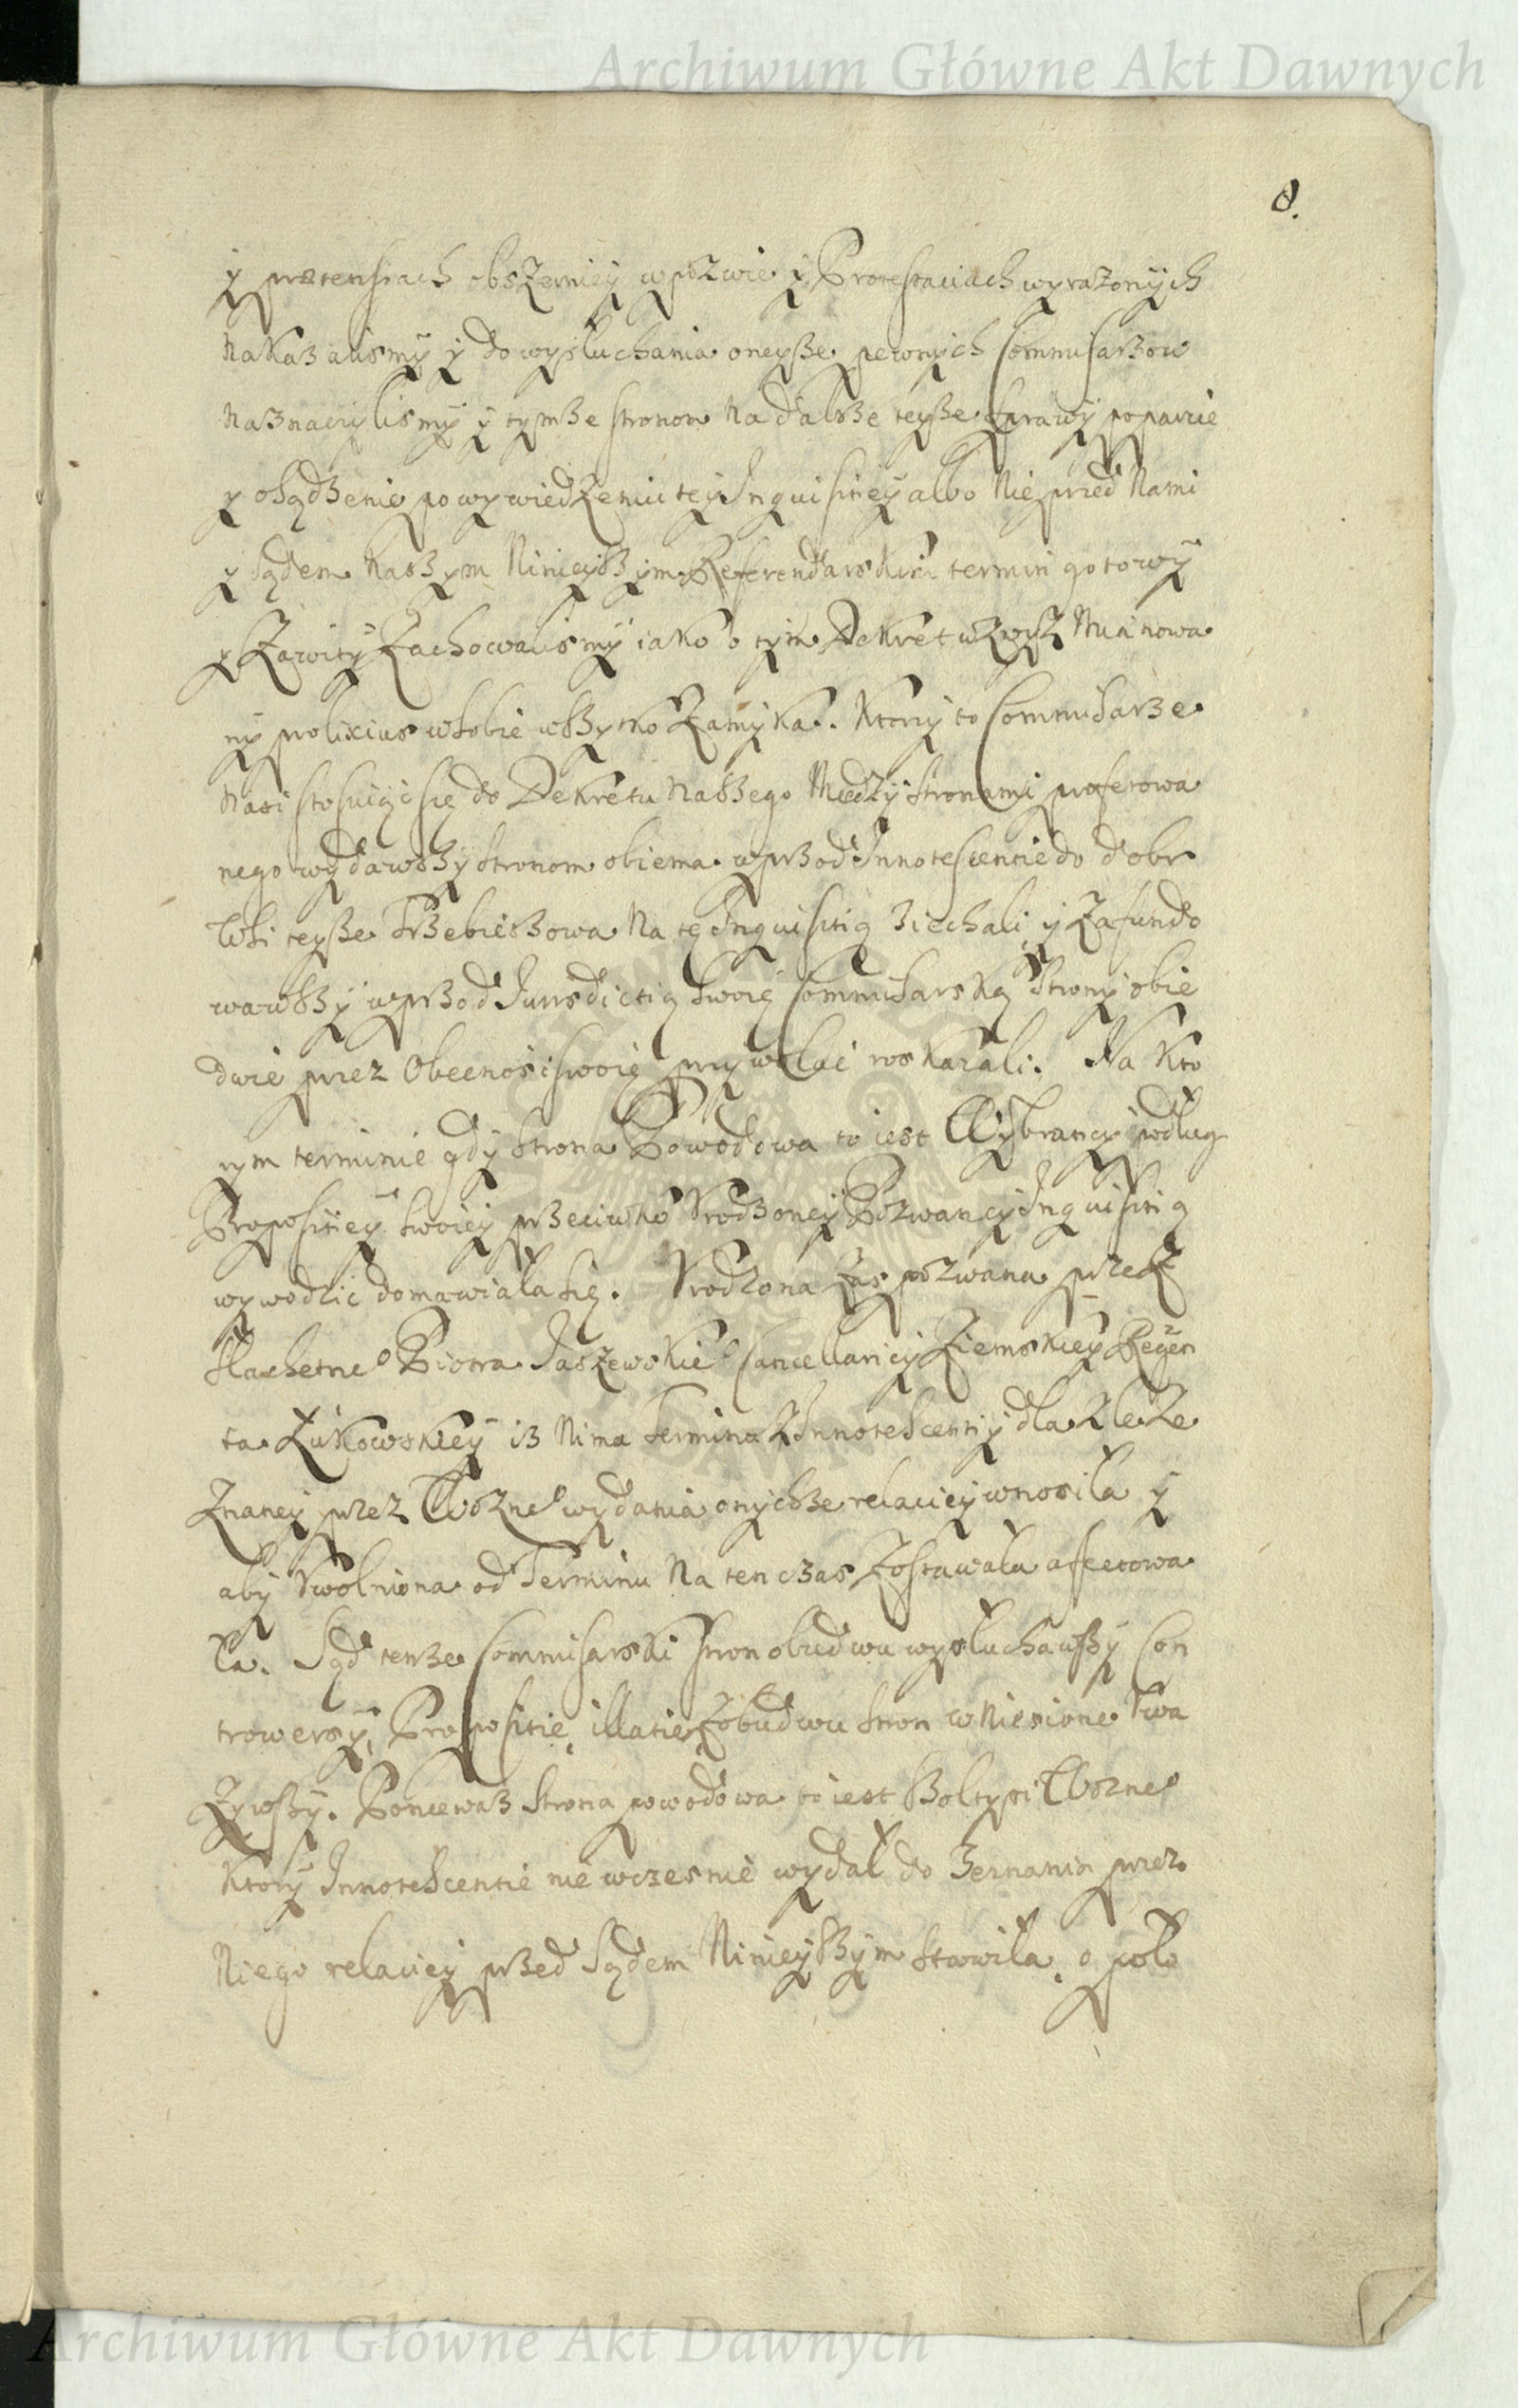 Archiwum Główne Akt Dawnych
8.
y prætensiach obszerniey w pozwie y Protestaciach wyrazonych
Nakazalismy y do wysłuchania oneysze pewnych Commisarzow
Naznaczylismy y tymsze stronom Na dalsze teysze sprawy poparcie
y osądzenie po wywiedzeniu tey Inquisitiey albo Nie przed Nami
y sądem Naszym Ninieyszym Referendarskim termin gotowy
y Zawity Zachowalismy iako o tym Dekret wzwysz Mianowa
ny prolixius w sobie wszytko Zamyka. Ktorzy to Commisarze
Nasi stosuiąc się do Dekretu Naszego Miedzy Stronami proferowa
nego wydawszy Stronom obiema wprzod Innotescentie do dobr
Wsi teysze Trzebieszowa Na tę Inquisitią ziechali y Zafundo
wawszy wprzod Jurisdictią swoię Commisarską Strony obie
dwie przez Obecnosc swoię przywołac roskazali. Na Kto
rym terminie gdy Strona Powodowa to iest Wybrancy podług
Propositiey swoiey przeciwko Vrodzoney Pozwaney Inquisitią
wywodzic domawiała się. Vrodzona zas pozwana przez
Slachetneo Piotra Jaszewskieo Cancellariey Ziemskiey Regen
ta Łukowskiey isz Nima Terminu z Innotescentiy dla Nieze
Znaney przez Wozneo wydania onychze relaciey wnosiła y
aby Vwolniona od Terminu Na ten czas Zostawała afectowa
ła. Sąd tenze Commisarski stron obudwu wysłuchawszy Con
trowersy, Propositie, illatie z obudwu Stron wniesione Vwa
Zywszy. Poniewasz Strona powodowa to iest Szoltysi Wozneo
Ktory Innotescentie nie wczesnie wydał do zeznania przez
Niego relaciey przed Sądem Ninieyszym Stawiła, o poło
Archiwum Główne Akt Dawnych